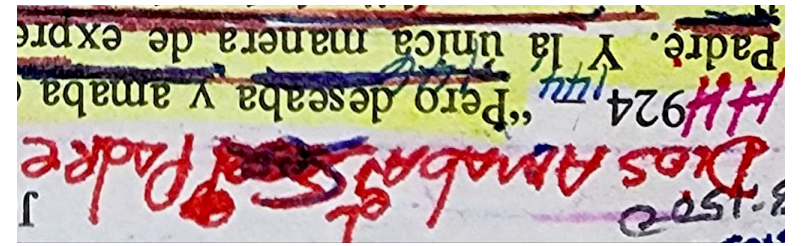 Dios Amaba el Padre
HH 924 144 “Pero deseaba y amaba
Padre. Y la única manera de expre